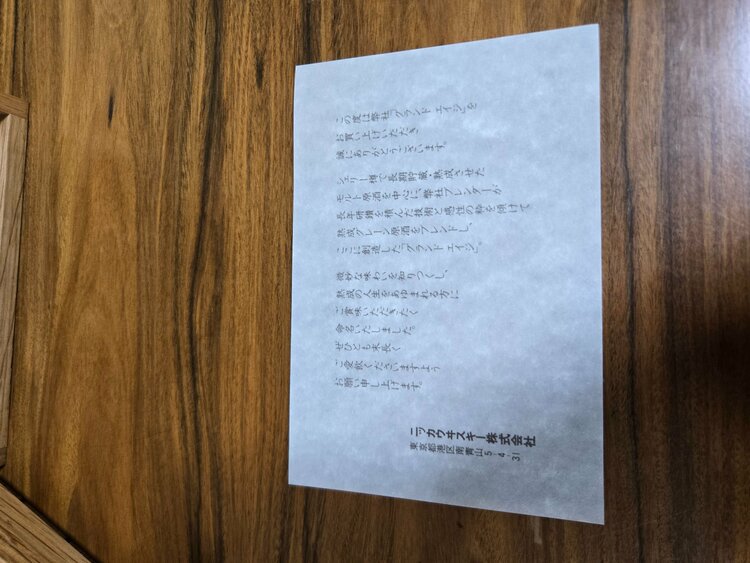 この度は弊社「グランド エイジ」を
お買い上げいただき
誠にありがとうございます。
シェリー樽で長期貯蔵・熟成させた
モルト原酒を中心に、弊社ブレンダーが
長年研鑽を積んだ技術と感性の粋を傾けて
熟成グレーン原酒をブレンドし、
ここに創造した「グランド エイジ」。
微妙な味わいを知りつくし、
熟成の人生をあゆまれる方に
ご賞味いただきたく
命名いたしました。
ぜひとも末長く
ご愛飲くださいますよう
お願い申し上げます。
ニッカウヰスキー株式会社
東京都港区南青山5-4-31